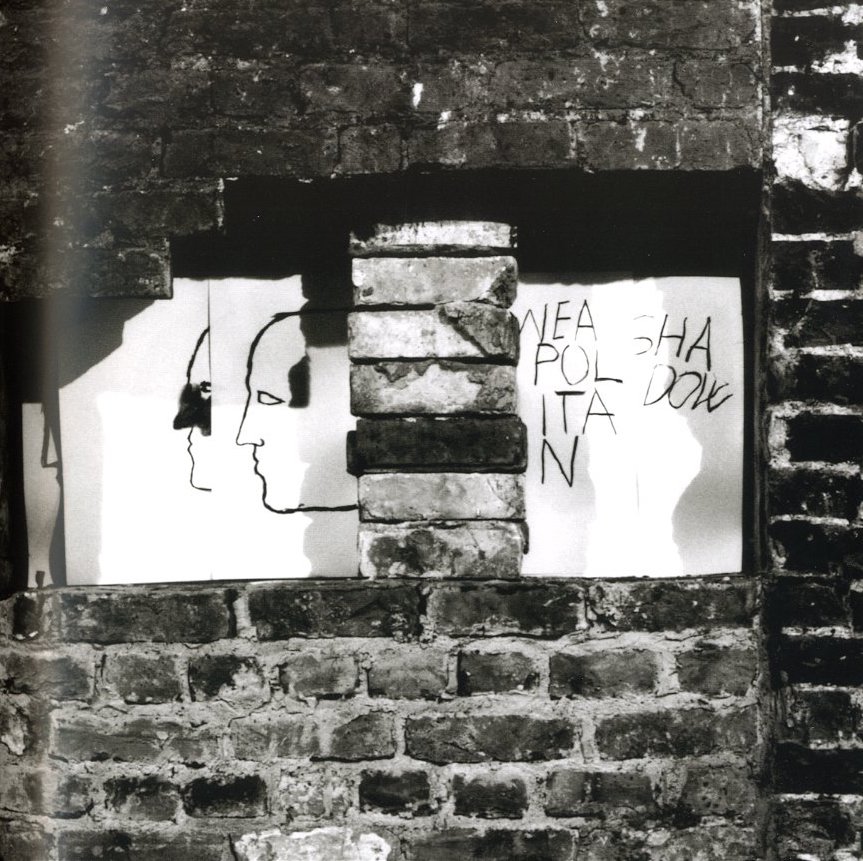 NEA
POL
ITA
N
SHA
DOW